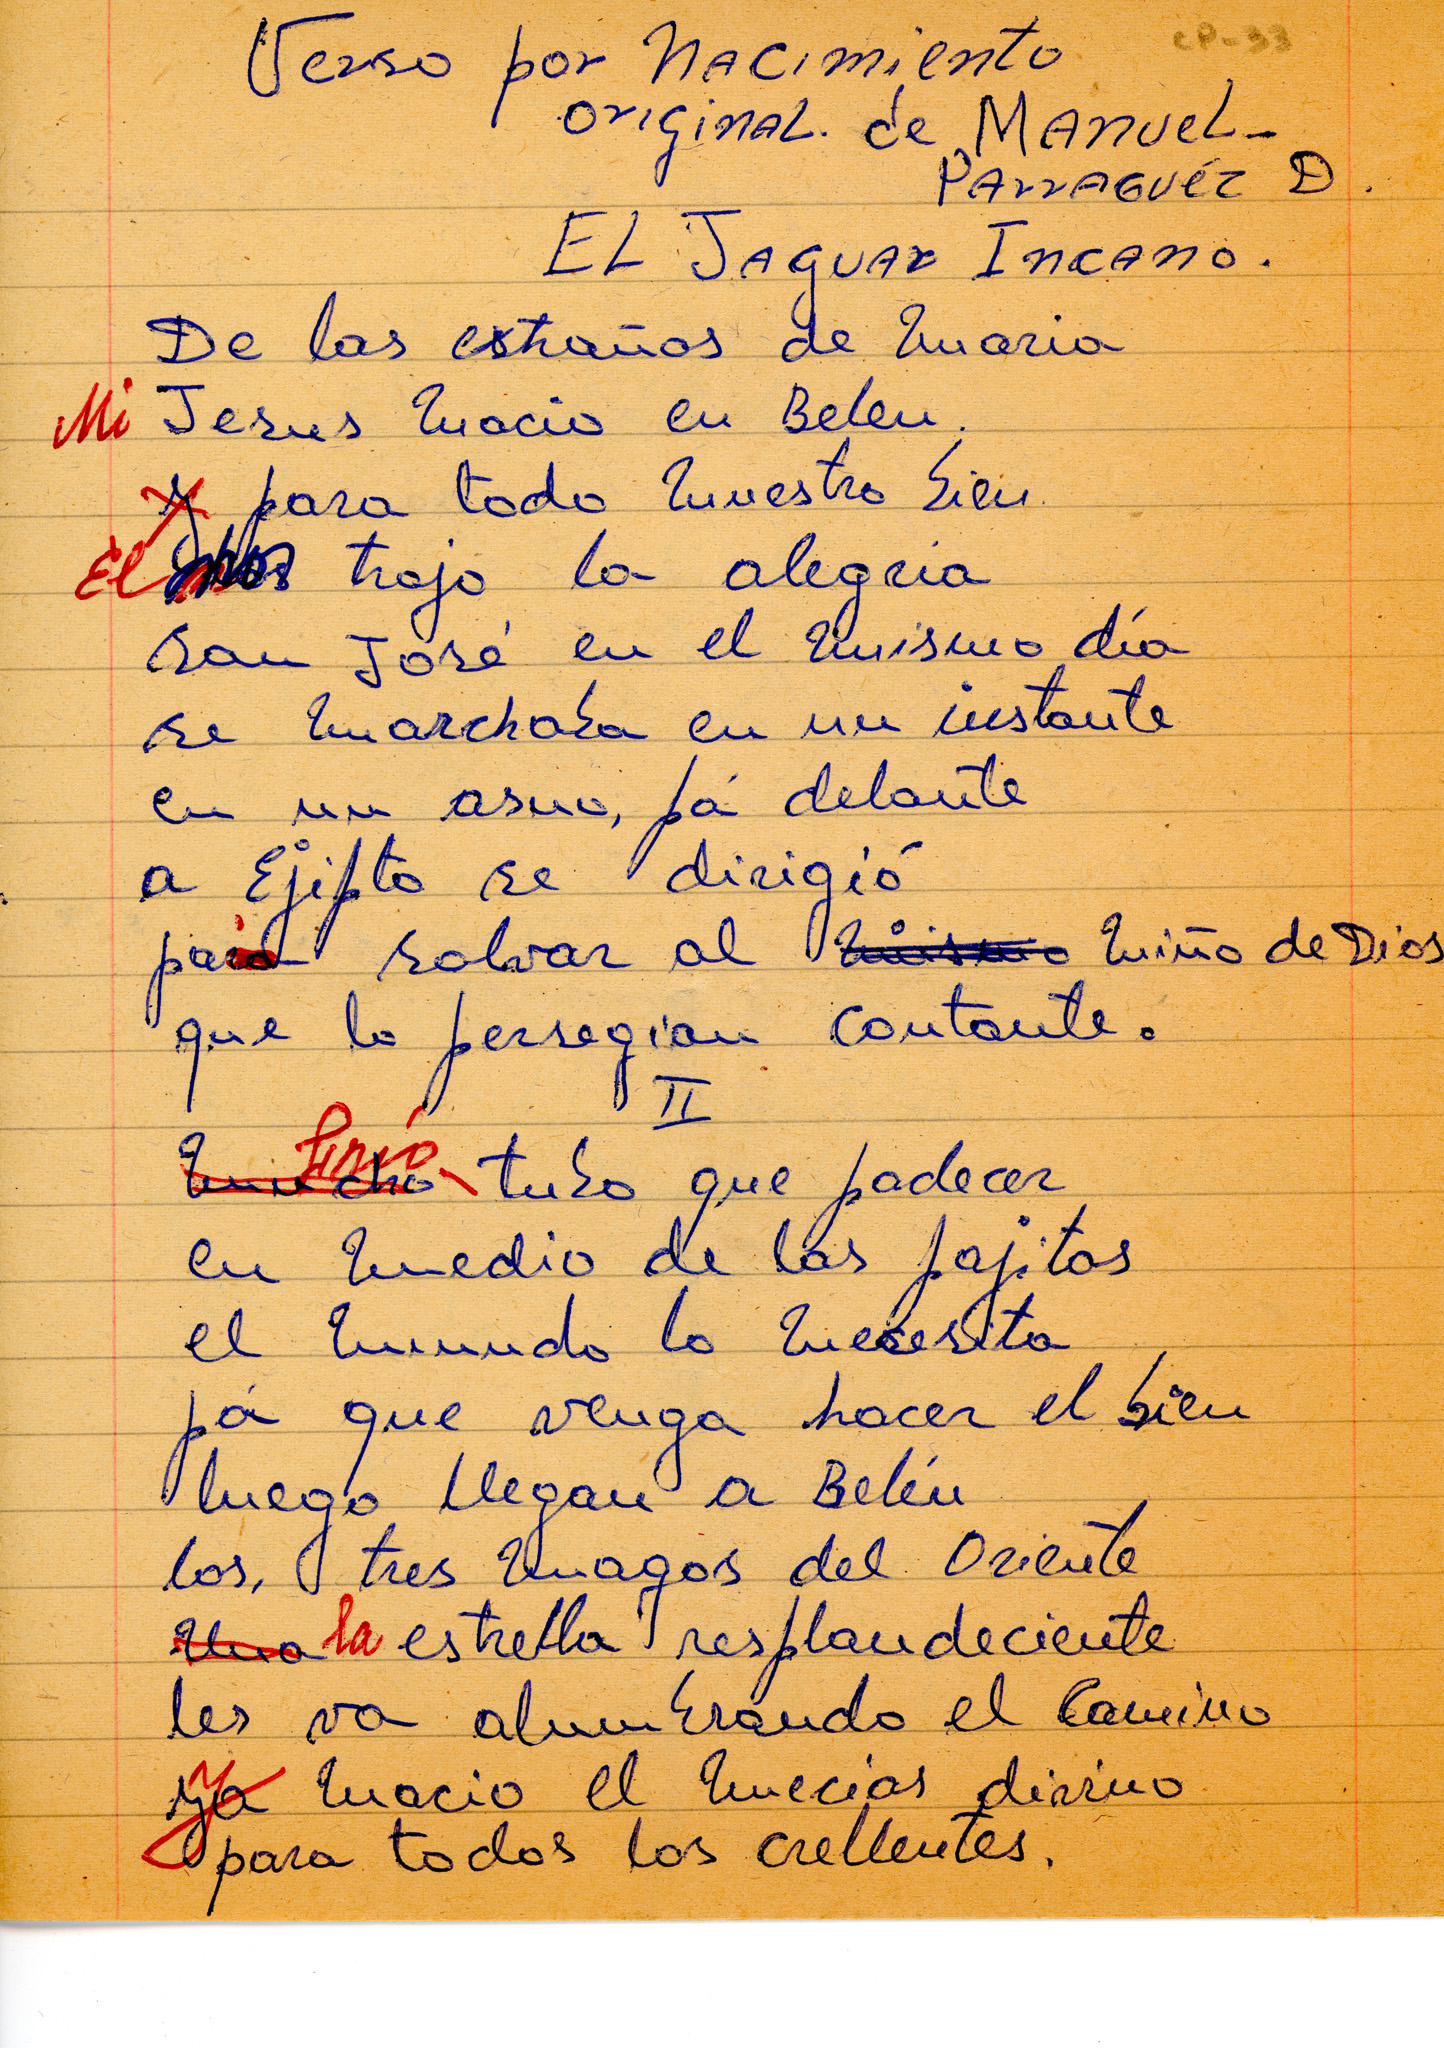 CP-33
Verso por Nacimiento
original. de Manuel-
Parraguéz D.
El Jaguar Incano.
De las estrañas de Maria
Mi Jesus Nacio en Belen.
Y para todo Nuestro bien
El nos trajo la alegria
San José en el Mismo día
se Marchaba en un instante
en un asno, pá delante
a Ejipto se dirigió
para salvar al Mismo Niño de Dios
que lo persegian contante.
II
Mucho Frió tubo que padecer
en Medio de las pajitas
el Mundo lo Necesita
pá que venga hacer el bien
luego llegan a Belén
los, tres Magos del Oriente
Una la estrella resplandeciente
les va alumbrando el Camino
ya Nacio el Mecias divino
para todos los crellentes.